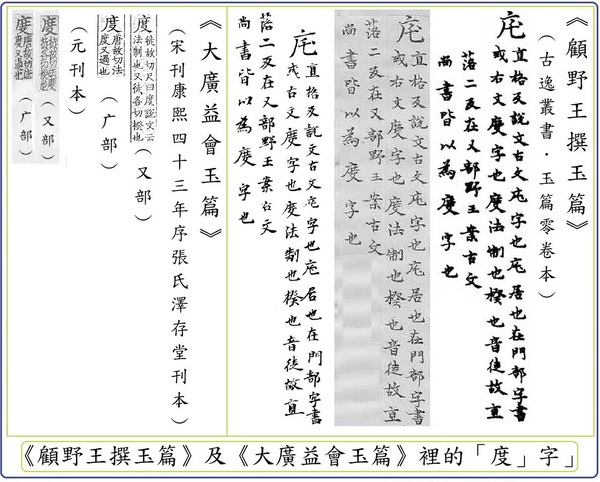 《顧野王撰玉篇》
（古逸叢書・玉篇零卷本）
㡯 直格反說文古文㡯字也㡯居也在門部字書
或古文度字也度法制也揆也音徒故直
落二反在又部野王案古文
尚書皆以為度字也
㡯 直格反說文古文㡯字也㡯居也在門部字書
或古文度字也度法制也揆也音徒故直
落二反在又部野王案古文
尚書皆以為度字也
㡯 直格反說文古文㡯字也㡯居也在門部字書
或古文度字也度法制也揆也音徒故直
落二反在又部野王案古文
尚書皆以為度字也
《大廣益會玉篇》
（宋刊康熙四十三年序張氏澤存堂刊本）
度 徒故切尺曰度說文云
法制也又徒各切揆也（又部）
度 唐故切法
度又過也（广部）
（元刊本）
度（又部）
度 唐故切法
度又過也（广部）
《顧野王撰玉篇》及《大廣益會玉篇》裡的「度」字